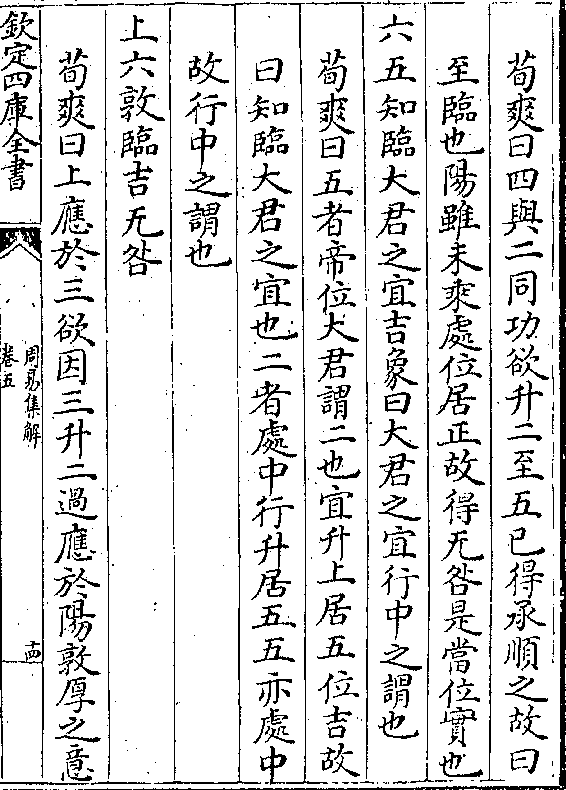 荀爽曰四與二同功欲升二至五已得承順之故曰
至臨也陽雖未乘處位居正故得无咎是當位實也
六五知臨大君之宜吉象曰大君之宜行中之謂也
荀爽曰五者帝位大君謂二也宜升上居五位吉故
曰知臨大君之宜也二者處中行升居五五亦處中
故行中之謂也
上六敦臨吉无咎
荀爽曰上應於三欲因三升二過應於陽敦厚之意
欽定四庫全書
周易集解
卷五
十四